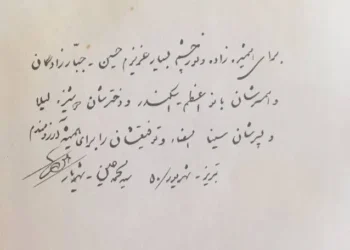 برای همشیره زاده و نورچشم بسیار عزیزم حسین - جبّارزادگان
و همسرشان بانو اعظم اسکندر و دخترشان دوشیزه لیلا
و پسرشان سینا و توفیقشان را برای همیشه آرزومندم
تبریز - شهریور/۵۰ سید محمد حسین - شهریار